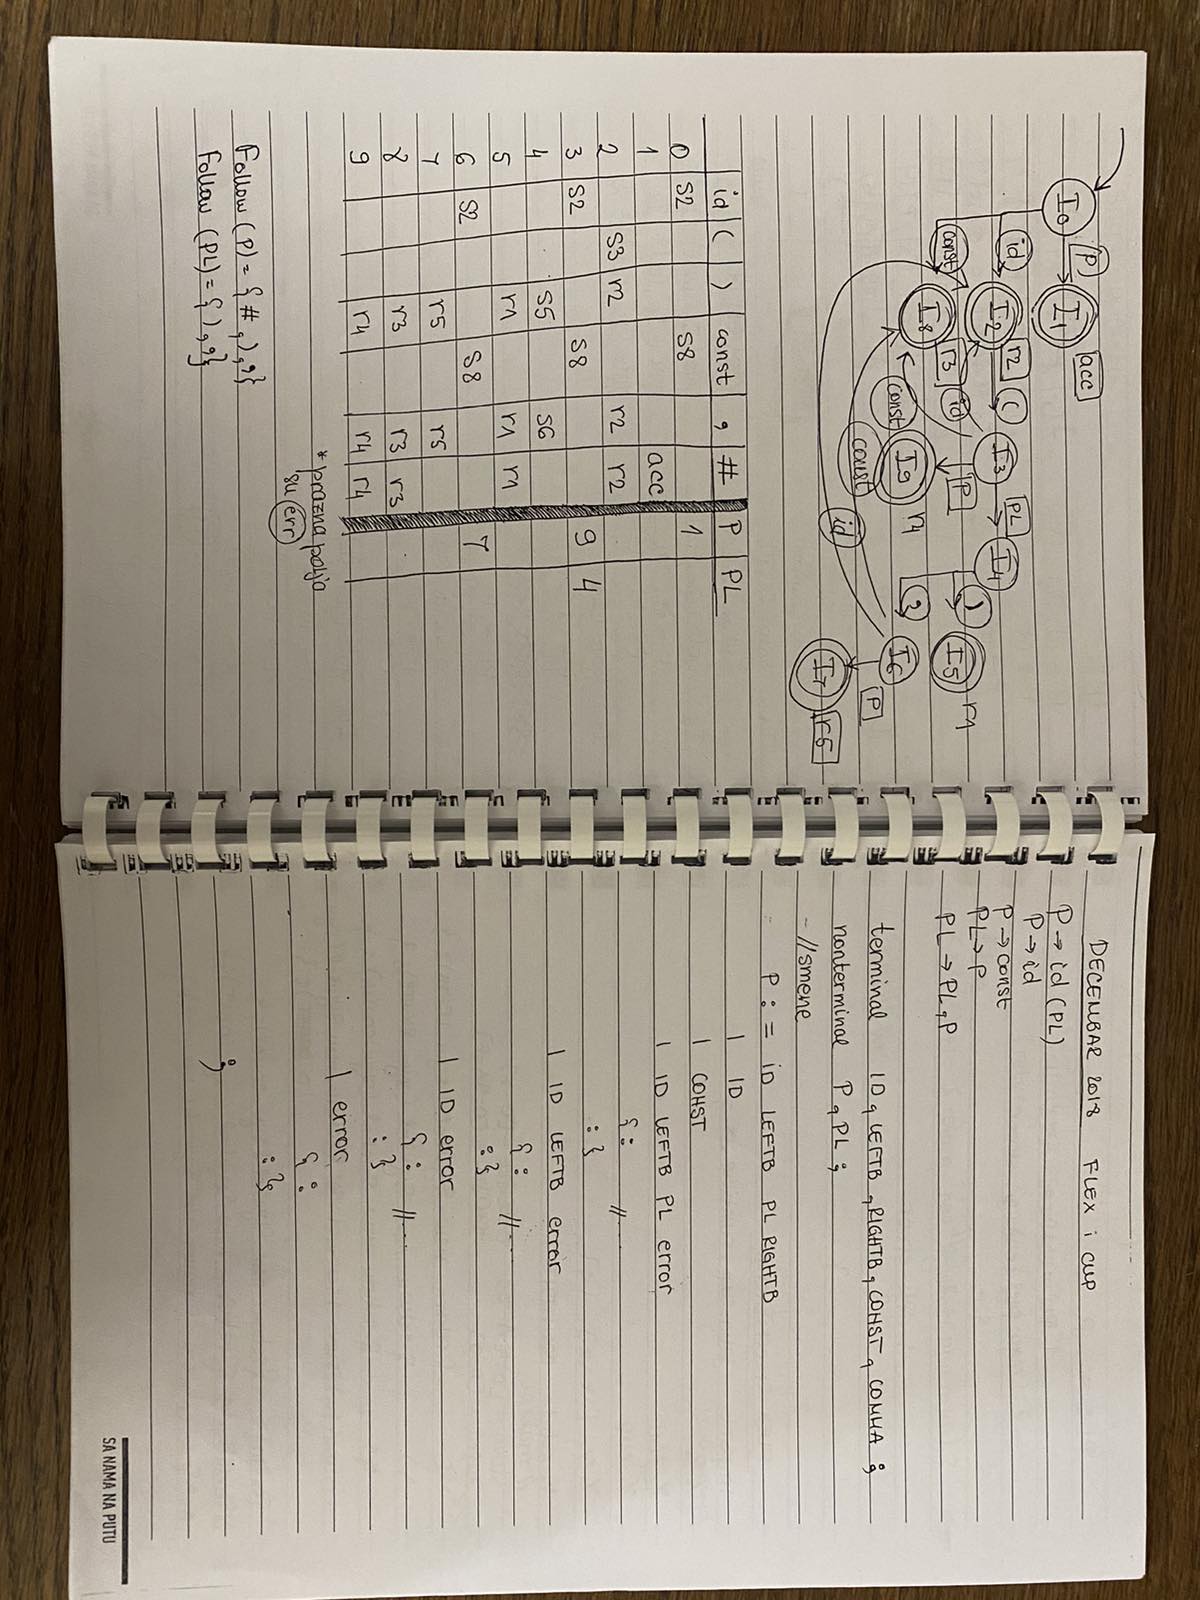 I0 P I1 acc
id I2 r2 ( I3 PL I4 ) I5 r1
const I8 r3 id P I9 r4 , I6 P I7 r5
const
const
id
id ( ) const , # P PL
0 S2 S8 1
1 acc
2 S3 r2 r2 r2
3 S2 S8 9 4
4 S5 S6
5 r1 r1 r1
6 S2 S8 7
7 r5 r5
8 r3 r3 r3
9 r4 r4 r4
* prazna polja
su err
Follow (P) = { #, ), , }
Follow (PL) = { ), , }
DECEMBAR 2018 FLEX i cup
P → id (PL)
P → id
P → const
PL → P
PL → PL, P
terminal ID, LEFTB, RIGHTB, CONST, COMMA ;
nonterminal P, PL ;
- //smene
P : = ID LEFTB PL RIGHTB
| ID
| CONST
| ID LEFTB PL error
{: //...
:}
| ID LEFTB error
{: //...
:}
| ID error
{: //...
:}
| error
{:
:}
;
SA NAMA NA PUTU